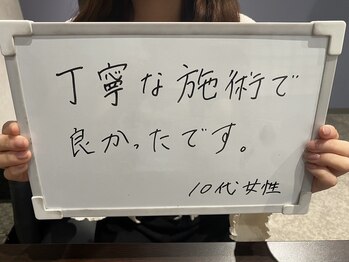 丁寧な施術で
良かったです。
10代女性